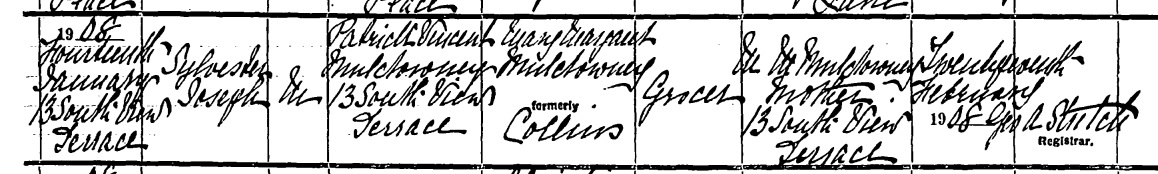 1908
Fourteenth
January
13 South View
Terrace
Sylvester
Joseph
M
Patrick Vincent
Mulctowney
13 South View
Terrace
Mary Margaret
Mulctowney
formerly
Collins
Grocer
M M Mulctowney
Mother
13 South View
Terrace
Twentyseventh
February
1908 Geo A
Registrar.